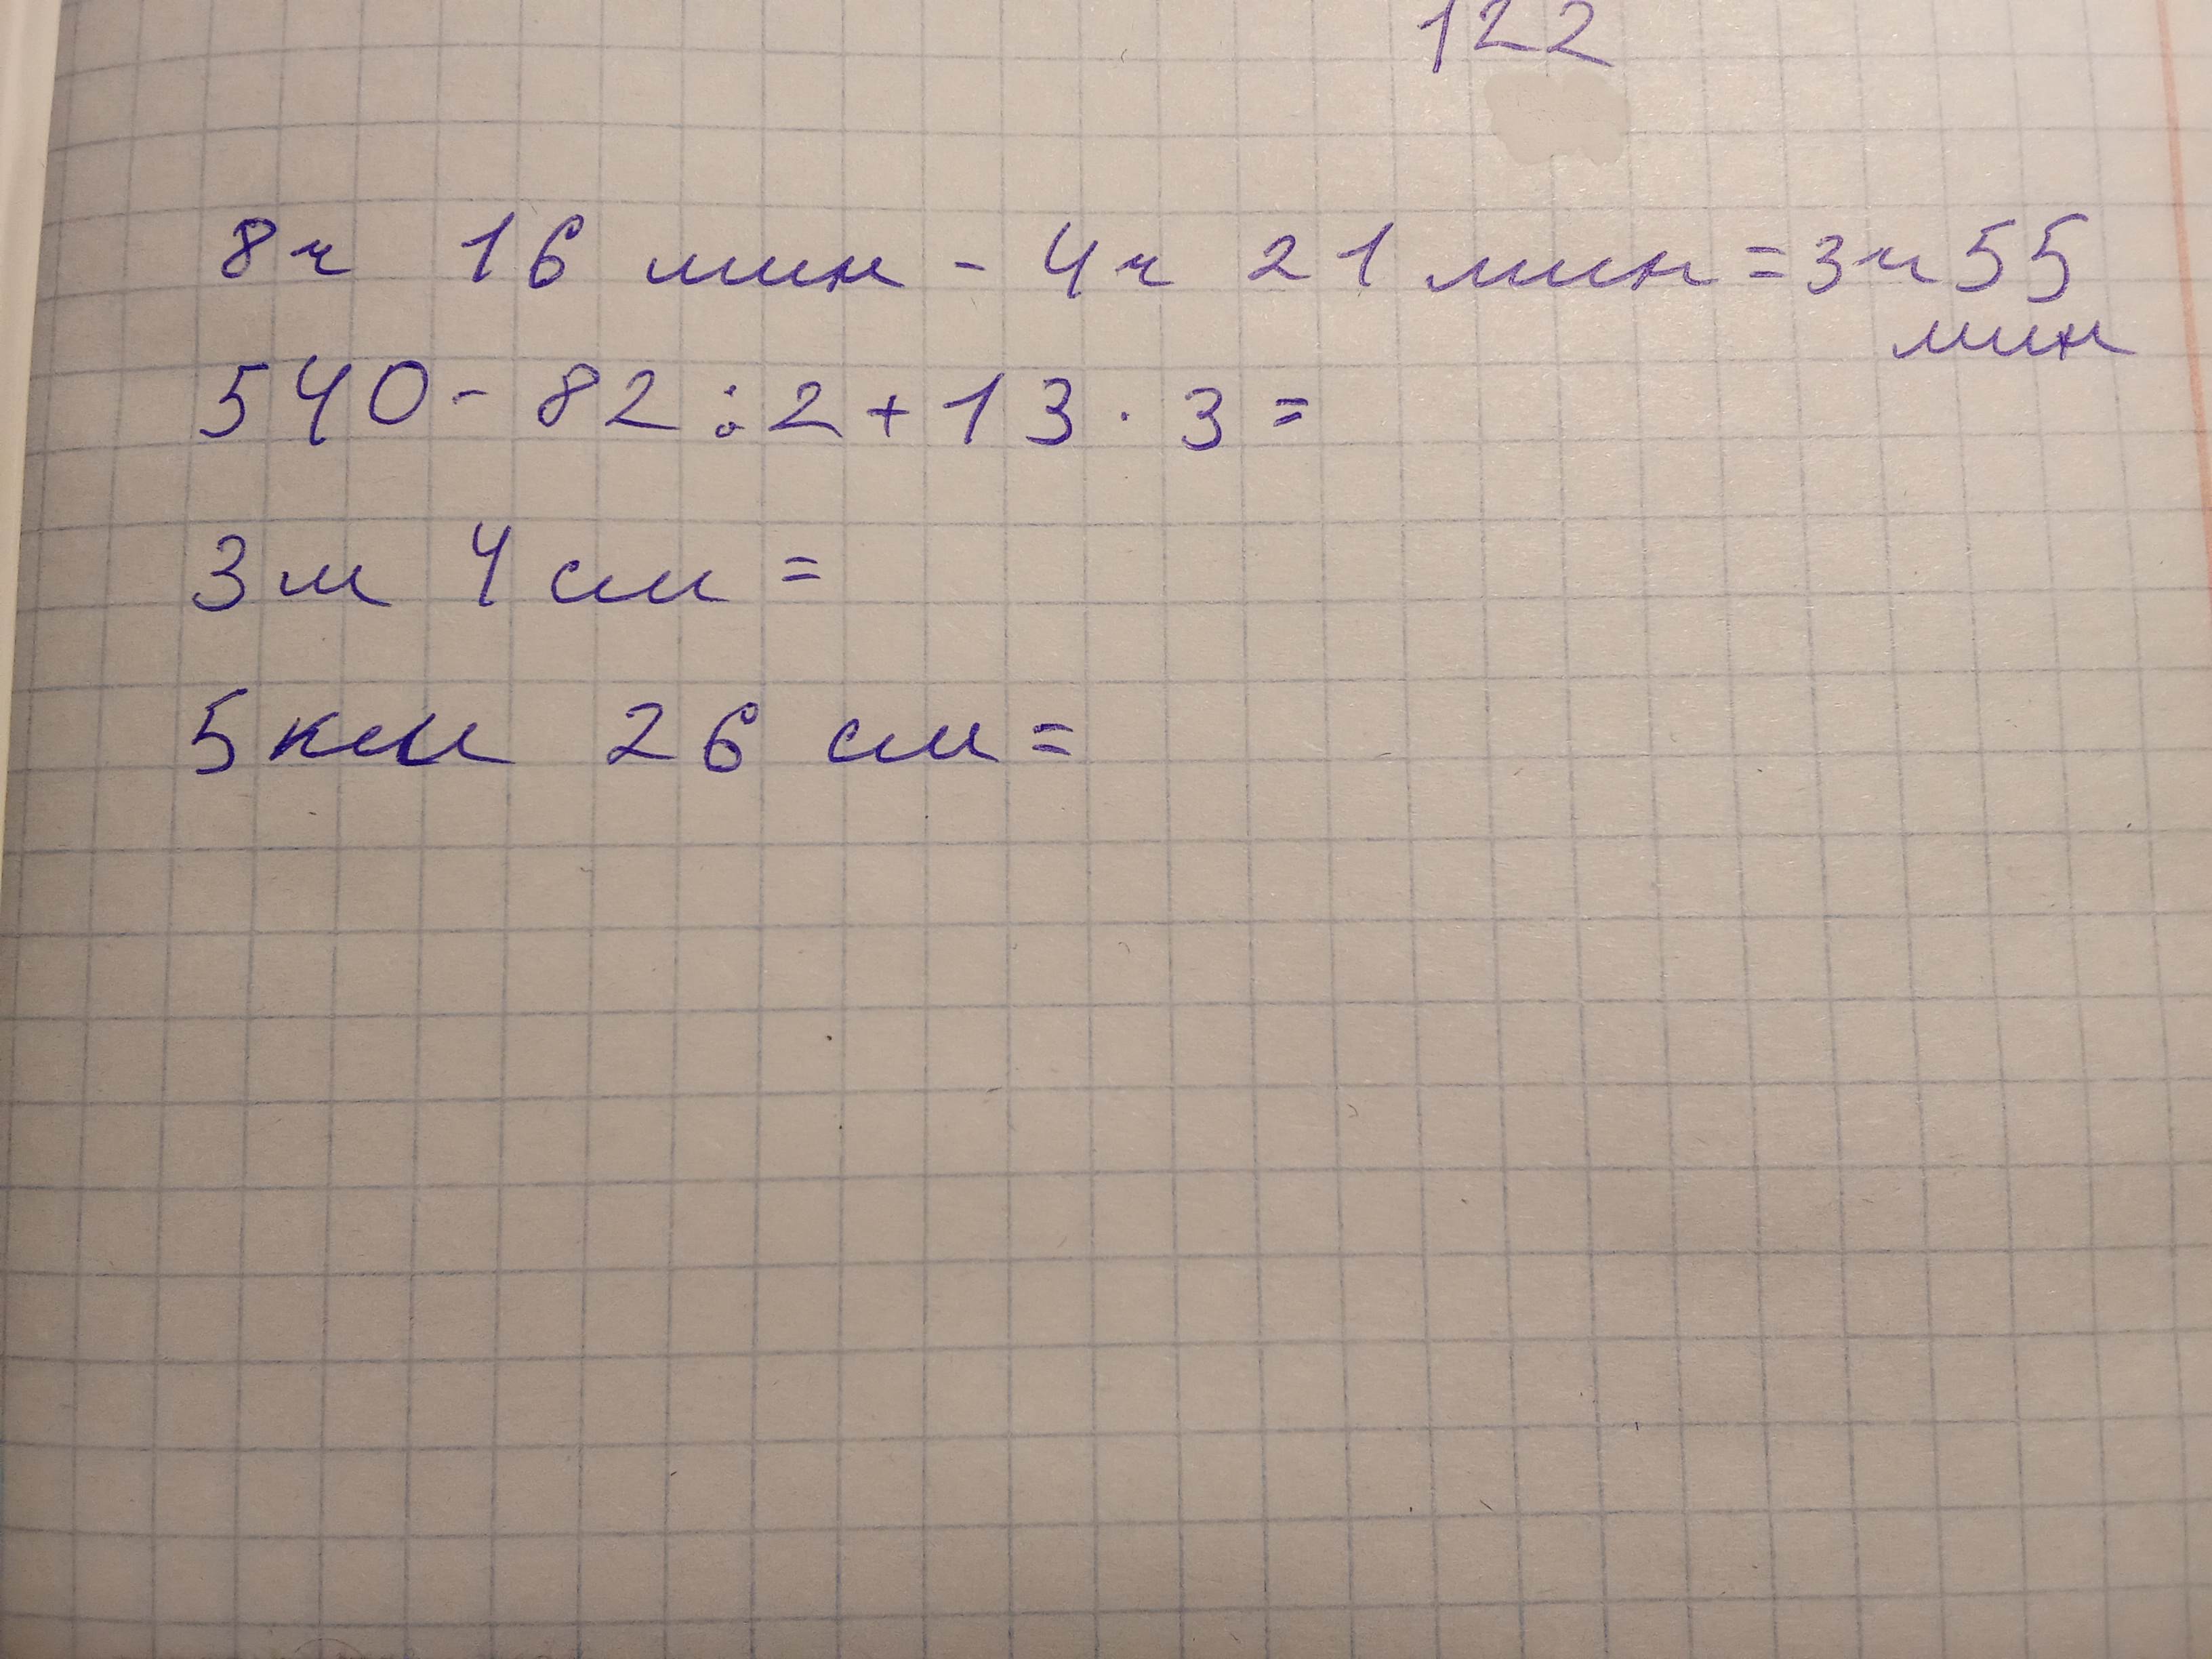 122
8ч 16 мин - 4ч 21 мин = 3ч 55
мин
540 - 82 : 2 + 13 · 3 =
3м 4 см =
5км 26 см =